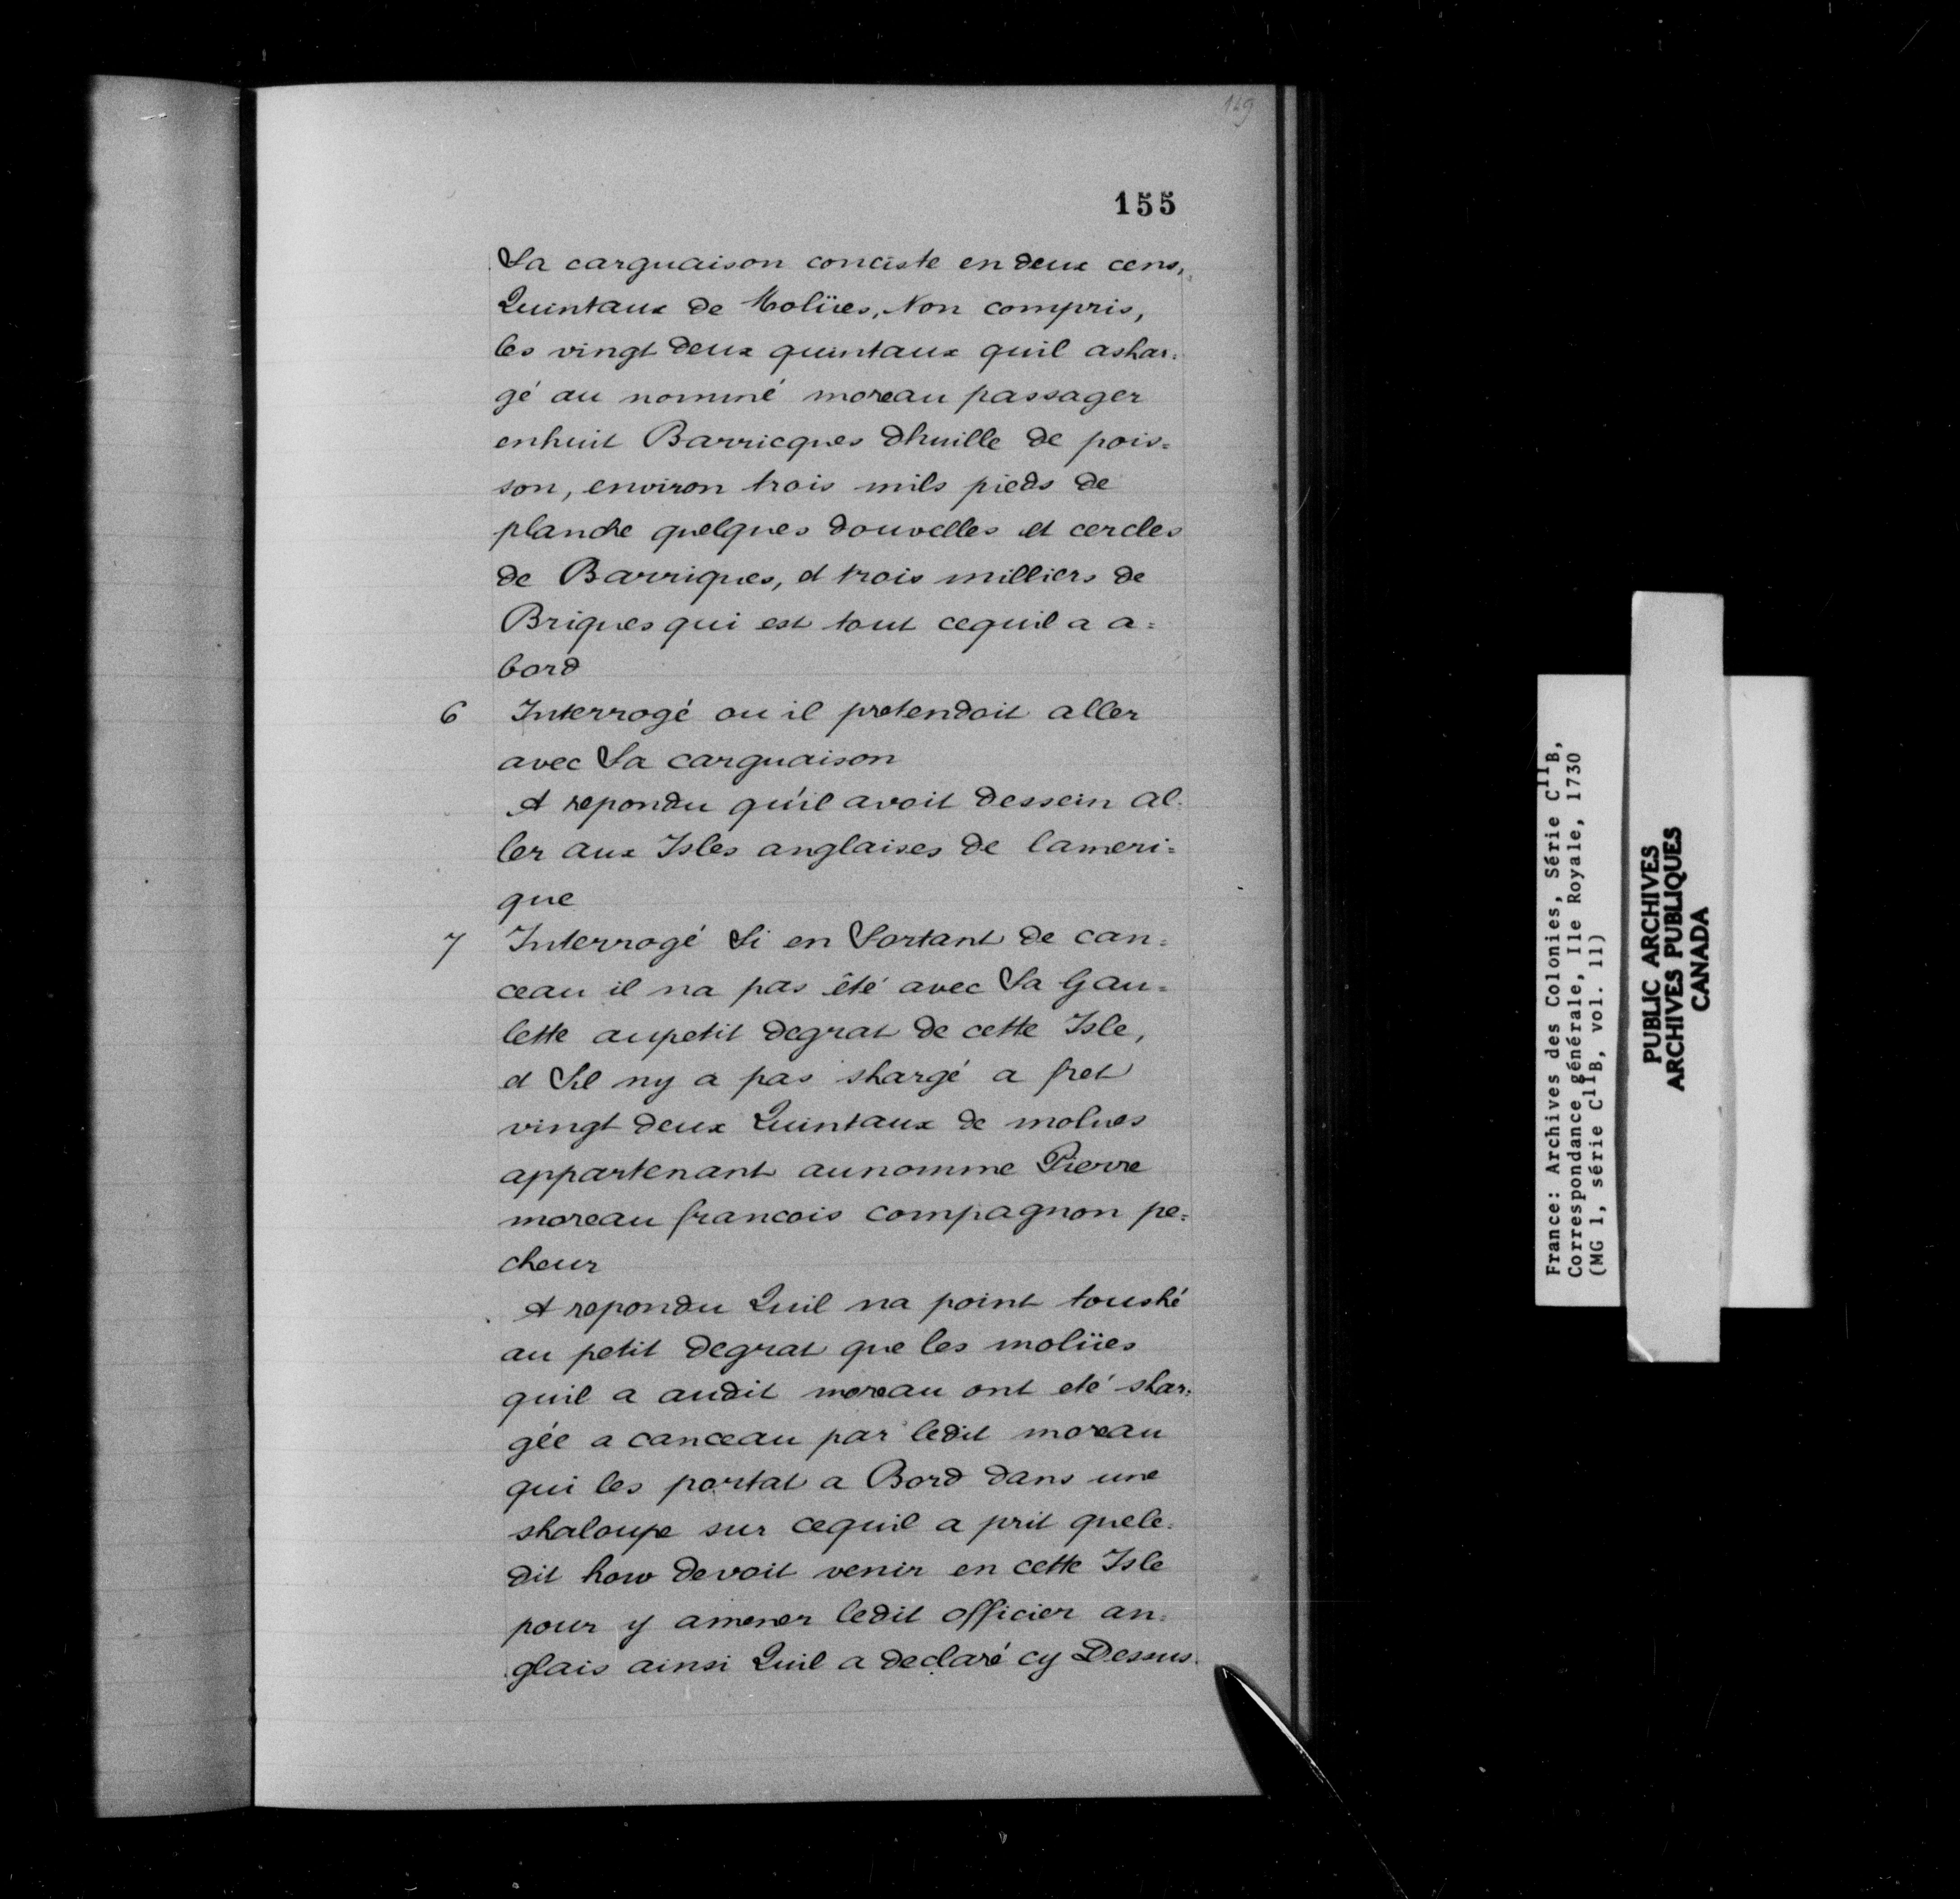 149
155
Sa carguaison conciste en deux cens,
Quintaux de Molües, Non compris,
les vingt deux quintaux quil a shar=
gé au nommé moreau passager
enhuit Barricques dhuille de pois=
son, environ trois mils pieds de
planche quelques douvelles et cercles
de Barriques, et trois milliers de
Briques qui est tout cequil a a=
bord
6 Interrogé ou il pretendoit aller
avec Sa carguaison
A repondu qu'il avoit dessein al=
ler aux Isles anglaises de lameri=
que
7 Interrogé Si en Sortant de can=
ceau il na pas été avec Sa Gau=
lette aupetit degrat de cette Isle,
et Sil ny a pas shargé a fret
vingt deux Quintaux de molues
appartenant aunomme Pierre
moreau francois compagnon pe=
cheur
A repondu Quil na point toushé
au petit degrat que les molües
quil a audit moreau ont eté shar=
gée a canceau par ledit moreau
qui les portat a Bord dans une
shaloupe sur cequil a prit quele=
dit how devoit venir en cette Isle
pour y amener ledit officier an=
glais ainsi Quil a declaré cy Dessus.
France: Archives des Colonies, Série C11B,
Correspondance générale, Ile Royale, 1730
(MG 1, série C11B, vol. 11)
PUBLIC ARCHIVES
ARCHIVES PUBLIQUES
CANADA